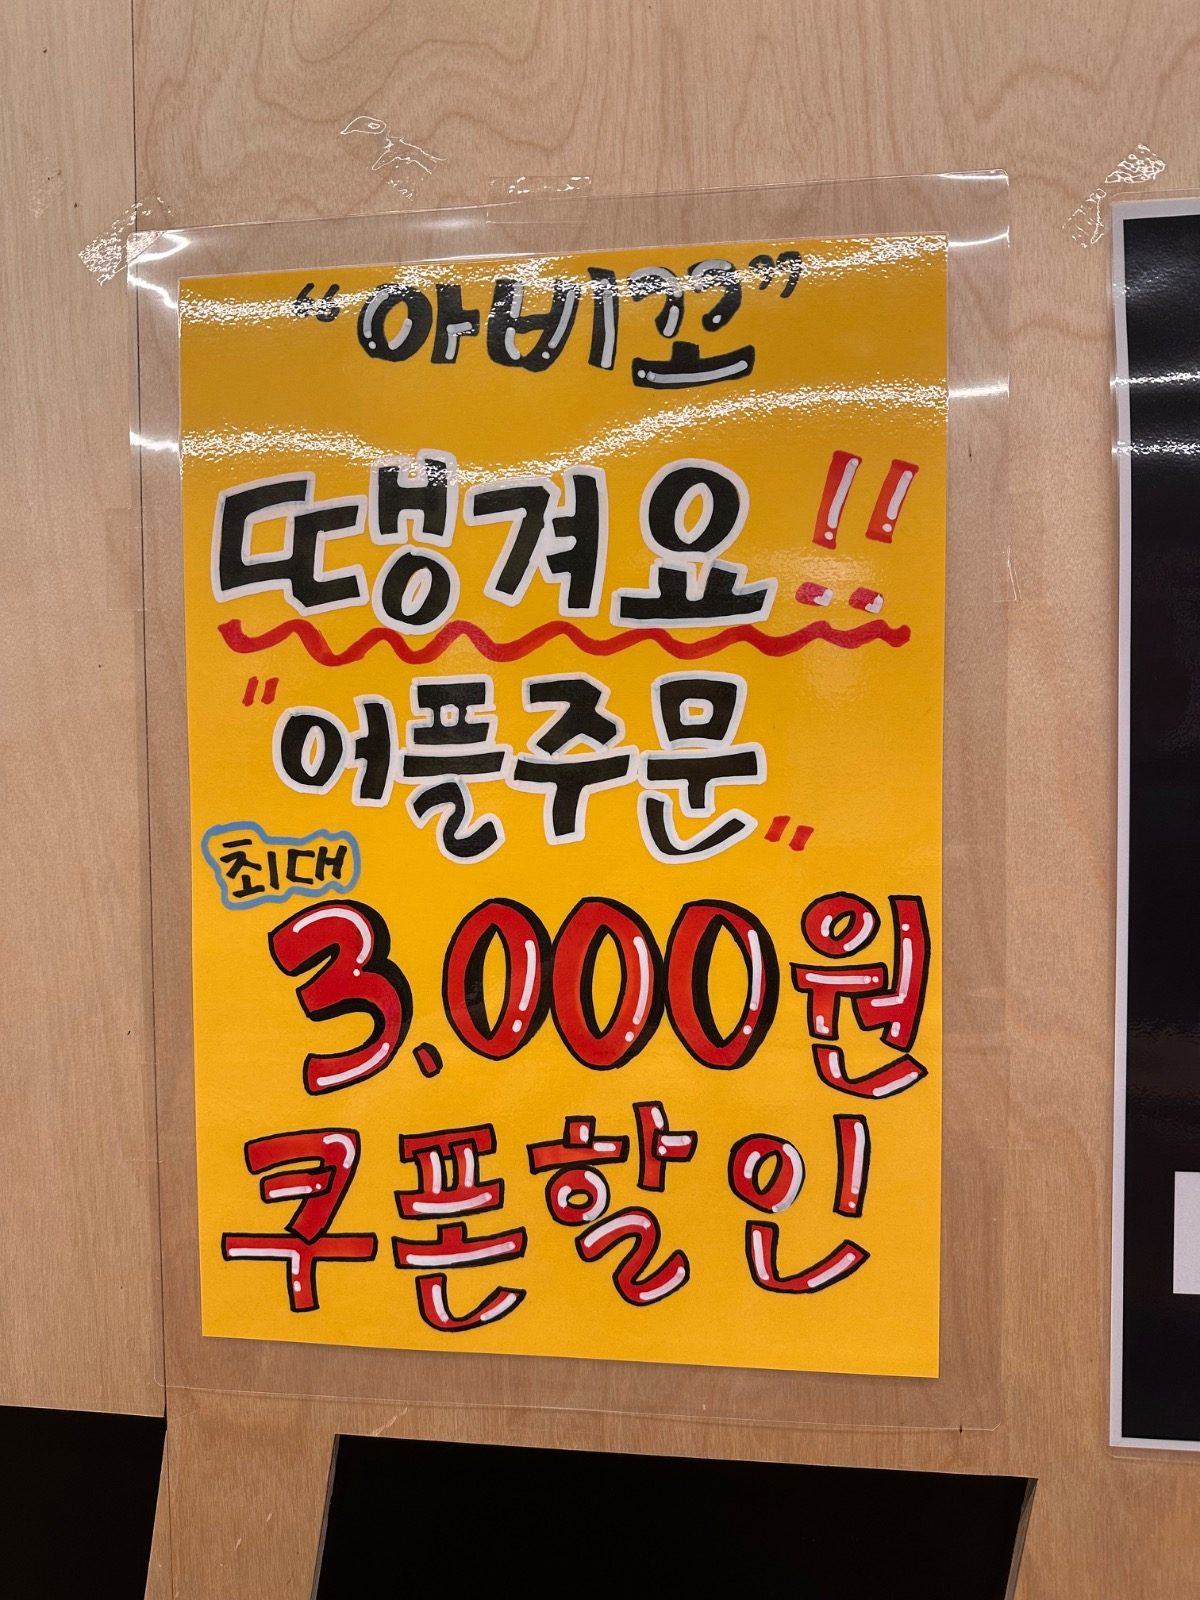 "아비꼬"
땡겨요!!
"어플주문"
최대
3,000원
쿠폰할인